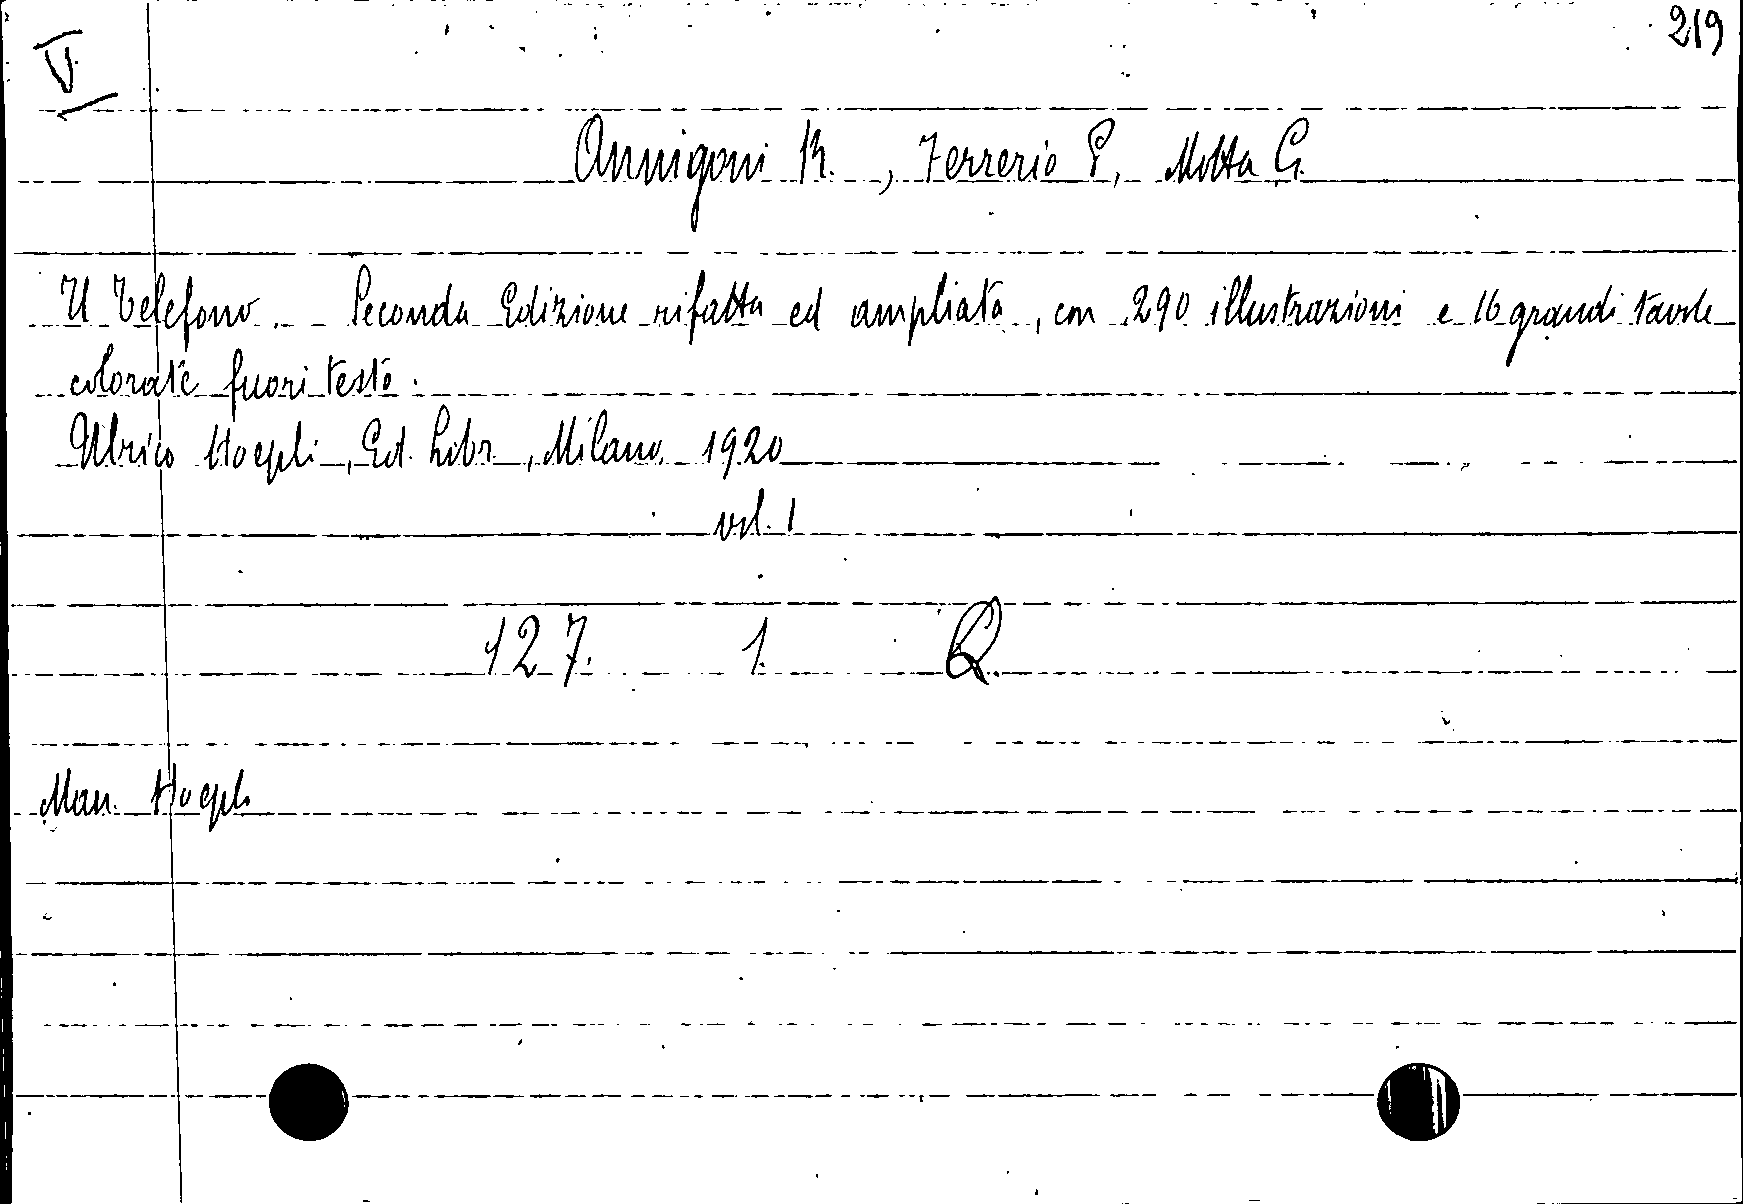 V
219
Annigoni R., Ferrerio P., Motta G.
Il Telefono - Seconda Edizione rifatta ed ampliata, con 290 illustrazioni e 16 grandi tavole
colorate fuori testo.
Ulrico Hoepli, Ed. Libr., Milano. 1920
vol. 1
127. 1. Q.
Man. Hoepli